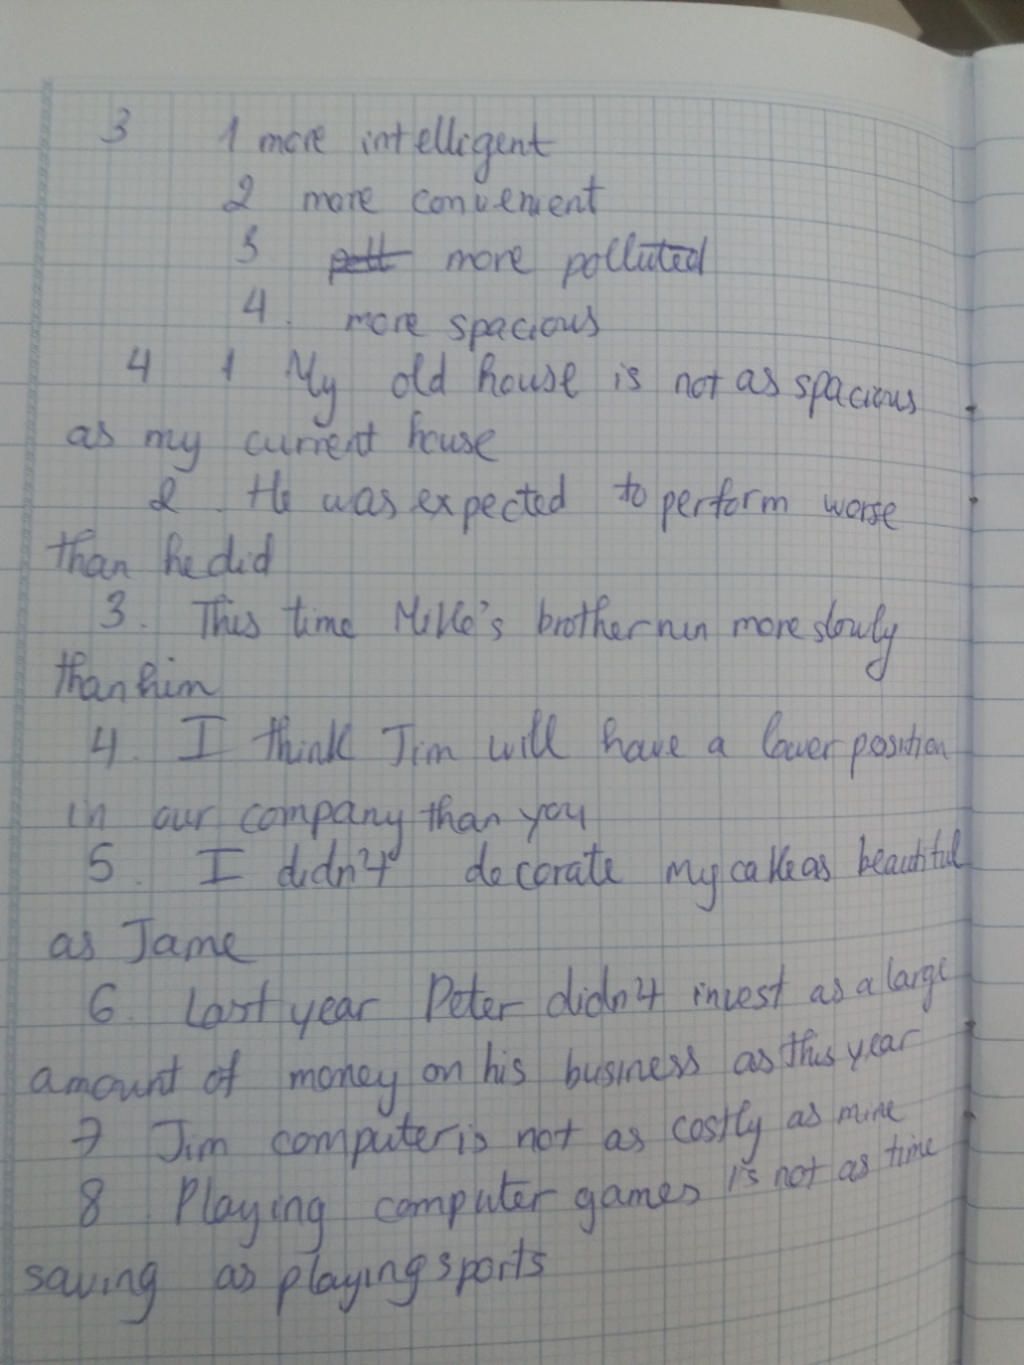 3 1 more intelligent
2 more convenient
3 more polluted
4. more spacious
4 1 My old house is not as spacious
as my current house
2. He was expected to perform worse
than he did
3. This time Mike's brother run more slowly
than him
4. I think Jim will have a lower position
in our company than you
5. I didn't decorate my cake as beautiful
as Jame
6. Last year Peter didn't invest as a large
amount of money on his business as this year
7 Jim computer is not as costly as mine
8. Playing computer games is not as time
saving as playing sports